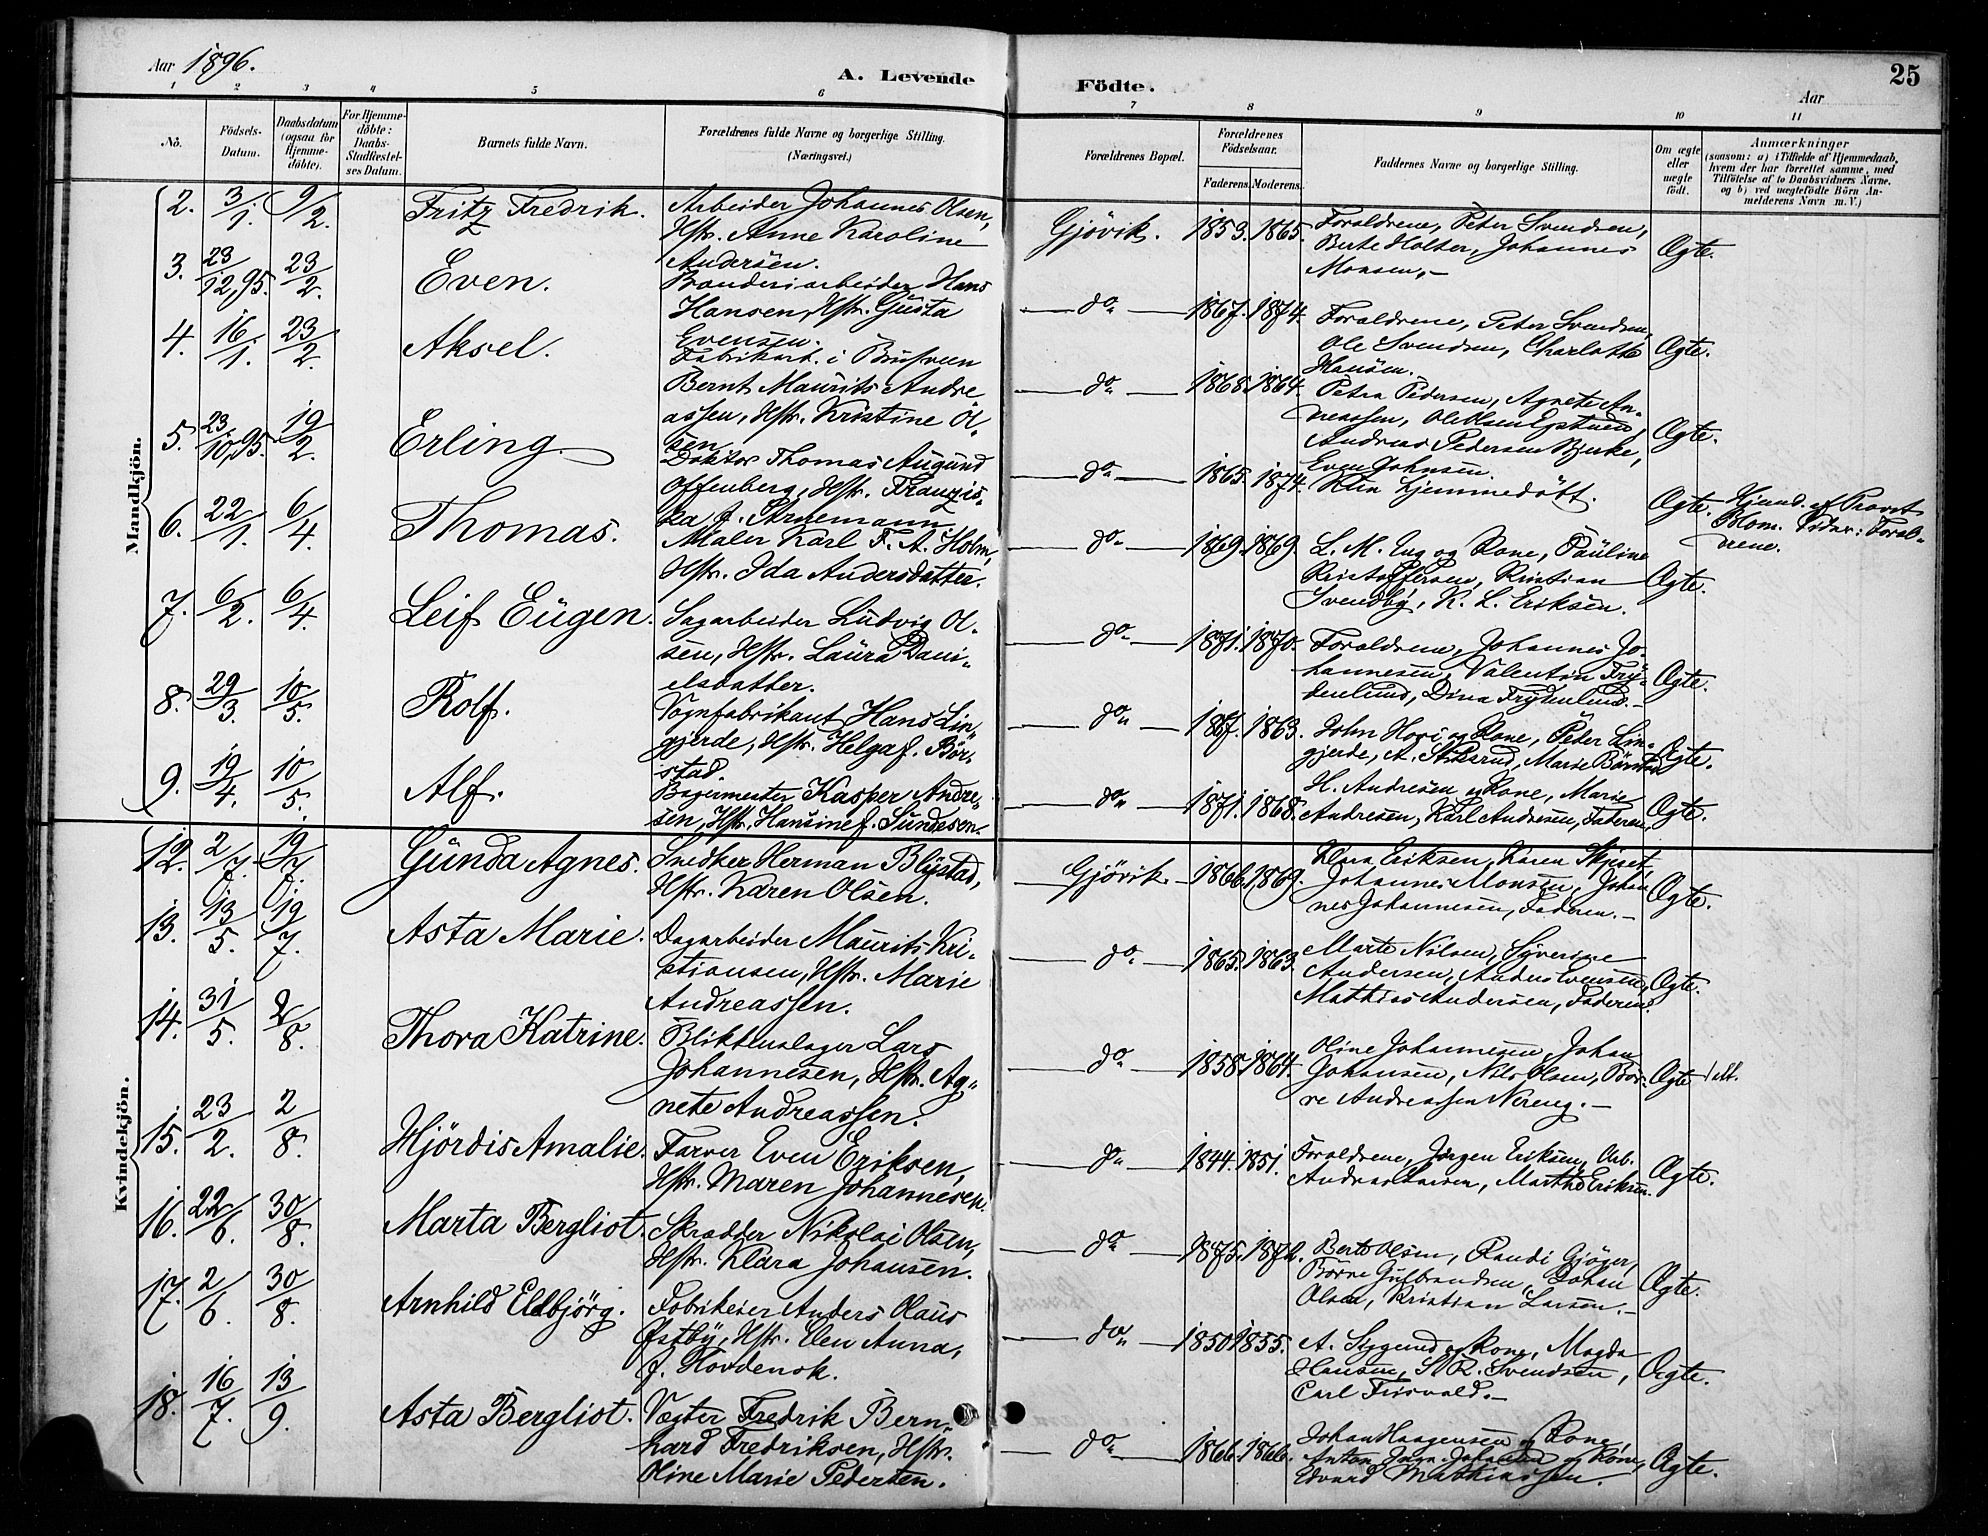 Aar 1896.
A. Levende Födte.
25
Aar
1 2 3 4 5 6 7 8 9 10 11
No.
Födsels-Datum.
Daabsdatum (ogsaa for Hjemme-döbte).
For Hjemme-döbte: Daabs-Stadfæstel-ses Datum.
Barnets fulde Navn.
Forældrenes fulde Navne og borgerlige Stilling. (Næringsvei.)
Forældrenes Bopæl.
Forældrenes Födselsaar.
Faderens. Moderens.
Faddernes Navne og borgerlige Stilling.
Om ægte eller uægte födt.
Anmærkninger (saasom: a) i Tilfælde af Hjemmedaab, hvem der har forrettet samme, med Tilföielse af to Daabsvidners Navne, og b) ved uægtefödte Börn Anmelderens Navn m. V.)
Mandkjön.
2. 3/1. 9/2. Fritz Fredrik. Arbeider Johannes Olsen,
Hstr. Anne Karoline
Andersen.
Gjövik. 1853. 1865. Foraldrene, Peter Svendsen,
Berte Holter, Johannes
Monsen.- Ægte.
3. 23/12,95. 23/2. Even. Brænderiarbeider Hans
Hansen, Hstr. Gusta
Evensen.
do 1867. 1874. Foraldrene, Peter Svendsen,
Ole Svendsen, Charlotte
Hansen. Ægte.
4. 16/1. 23/2. Aksel. Fabrikarb. i
Bernt Maurits Andre
assen, Hstr. Kristine Ol-
sen
do 1868. 1864. Petra Pedersen, Agnete An-
dreassen, Ole Olsen
Andreas Pedersen Bjerke,
Even Johnsen. Ægte.
5. 23/10,95. 19/2. Erling. Doktor Thomas Augund
Offenberg, Hstr. Franzis-
ka f. Arnemann
do 1865. 1874. Kun hjemmedöbt. Ægte. Hjemd. af Provst
Blom. Vidner: Foral-
drene.
6. 22/1. 6/4. Thomas. Maler Karl F. A. Holm,
Hstr. Ida Andersdatter.
do 1869. 1869. L. M. Eng og Kone, Pauline
Kristoffersen, Kristian
Svendby, K. L. Eriksen. Ægte.
7. 6/2. 6/4. Leif Eugen. Sagarbeider Ludvig Ol-
sen, Hstr. Laura Dani-
elsdatter.
do 1871. 1870. Foraldrene, Johannes Jo-
hannesen, Valentin Fry-
denlund, Dina Frydenlund.- Ægte.
8. 29/3. 10/5. Rolf. Vognfabrikant Hans Lin-
gjerde, Hstr. Helga f. Bör-
stad.
do 1867. 1863. John Hovi og Kone, Peter Lin-
gjerde, A. Stiksrud, Marie Börstad Ægte.
9. 19/4. 10/5. Alf. Bagermester Kasper Andre-
sen, Hstr. Hansine f. Sundesen.
do 1871. 1868. H. Andresen og Kone, Marie
Andresen, Karl Andresen, Faderen. Ægte.
Kvindekjön.
12. 2/7. 19/7. Gunda Agnes. Snedker Herman Blystad,
Hstr. Karen Olsen.
Gjövik 1866. 1869. Klara Eriksen, Karen
Johannes Monsen, Johan
nes Johannesen, Faderen.- Ægte.
13. 13/5. 19/7. Asta Marie. Dagarbeider Maurits Kri-
stiansen, Hstr. Marie
Andreassen.
do 1865. 1863. Marte Nilsen, Syverine
Andersen, Anders Evensen,
Mathias Andersen, Faderen. Ægte.
14. 31/5. 2/8. Thora Katrine. Blikkenslager Lars
Johannesen, Hstr. Ag-
nete Andreassen.
do 1858. 1864. Oline Johannesen, Johan
Johansen, Nils Olsen, Bör-
re Andreassen Nereng.- Ægte
15. 23/2. 2/8. Hjördis Amalie. Farver Even Eriksen,
Hstr. Maren Johannesen.
do 1844. 1851. Foraldrene, Jörgen Eriksen, Arb.
Andreas Larsen, Marthe Eriksen. Ægte.
16. 22/6. 30/8. Marta Bergliot. Skradder Nikolai Olsen,
Hstr. Klara Johansen.
do 1875. 1872. Berte Olsen, Randi Gjöger,
Börne Gulbrandsen, Johan
Olsen, Kristian Larsen.- Ægte.
17. 2/6. 30/8. Arnhild Eldbjörg. Fabrikeier Anders Olaus
Østby, Hstr. Elen Anna,
f. Hovdenak.
do 1850 1855. A. Sygund og Kone, Magda
Hansen, S. R. Svendsen,
Carl Fiirvald.- Ægte.
18. 16/7. 13/9. Asta Bergliot. Vægter Fredrik Bern-
hard Fredriksen, Hstr.
Oline Marie Pedersen.
do 1866. 1866. Johan Haagensen og Kone,
Anton Johansen og Kone,
Edvard Mathiassen. Ægte.